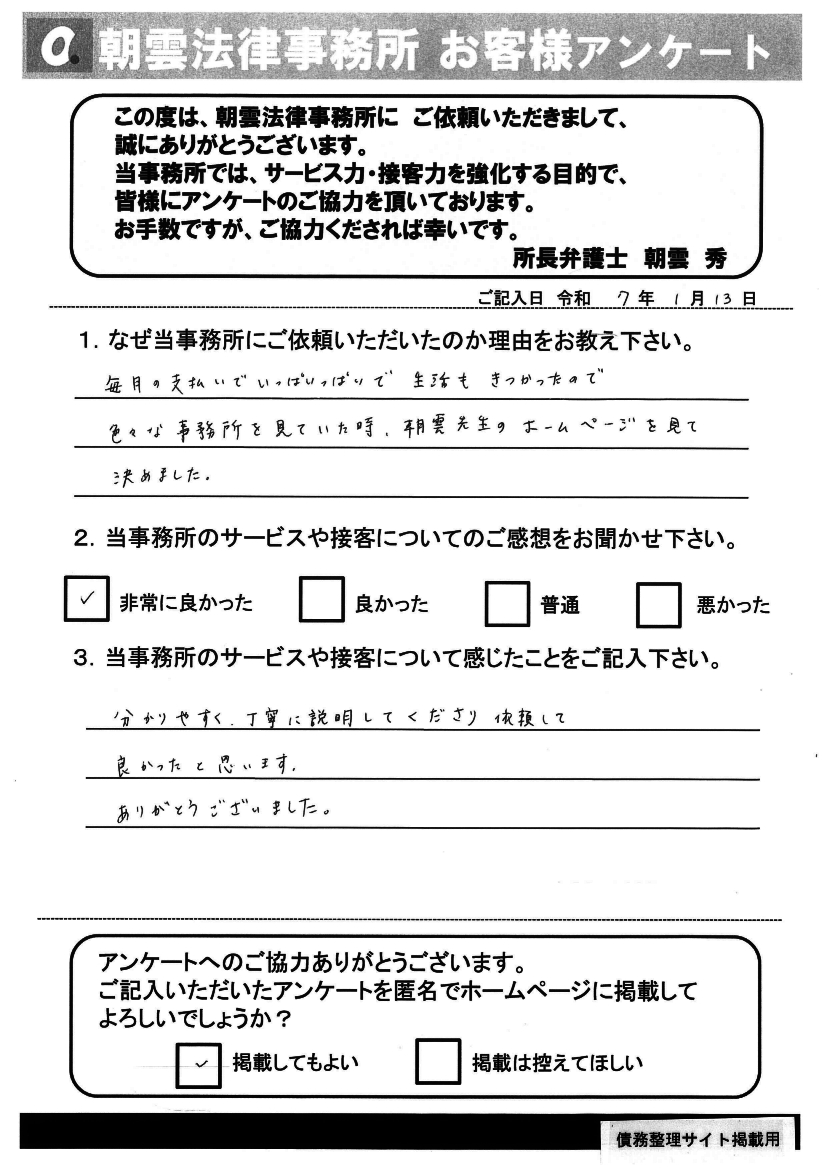 a. 朝雲法律事務所 お客様アンケート
この度は、朝雲法律事務所に ご依頼いただきまして、
誠にありがとうございます。
当事務所では、サービス力・接客力を強化する目的で、
皆様にアンケートのご協力を頂いております。
お手数ですが、ご協力くだされば幸いです。
所長弁護士 朝雲 秀
ご記入日 令和 7 年 1 月 13 日
1. なぜ当事務所にご依頼いただいたのか理由をお教え下さい。
毎月の支払いでいっぱいいっぱいで 生活も きつかったので
色々な事務所を見ていた時、朝雲先生のホームページを見て
決めました。
2. 当事務所のサービスや接客についてのご感想をお聞かせ下さい。
✓ 非常に良かった 良かった 普通 悪かった
3. 当事務所のサービスや接客について感じたことをご記入下さい。
分かりやすく、丁寧に説明してくださり 依頼して
良かったと思います。
ありがとうございました。
アンケートへのご協力ありがとうございます。
ご記入いただいたアンケートを匿名でホームページに掲載して
よろしいでしょうか？
✓ 掲載してもよい 掲載は控えてほしい
債務整理サイト掲載用